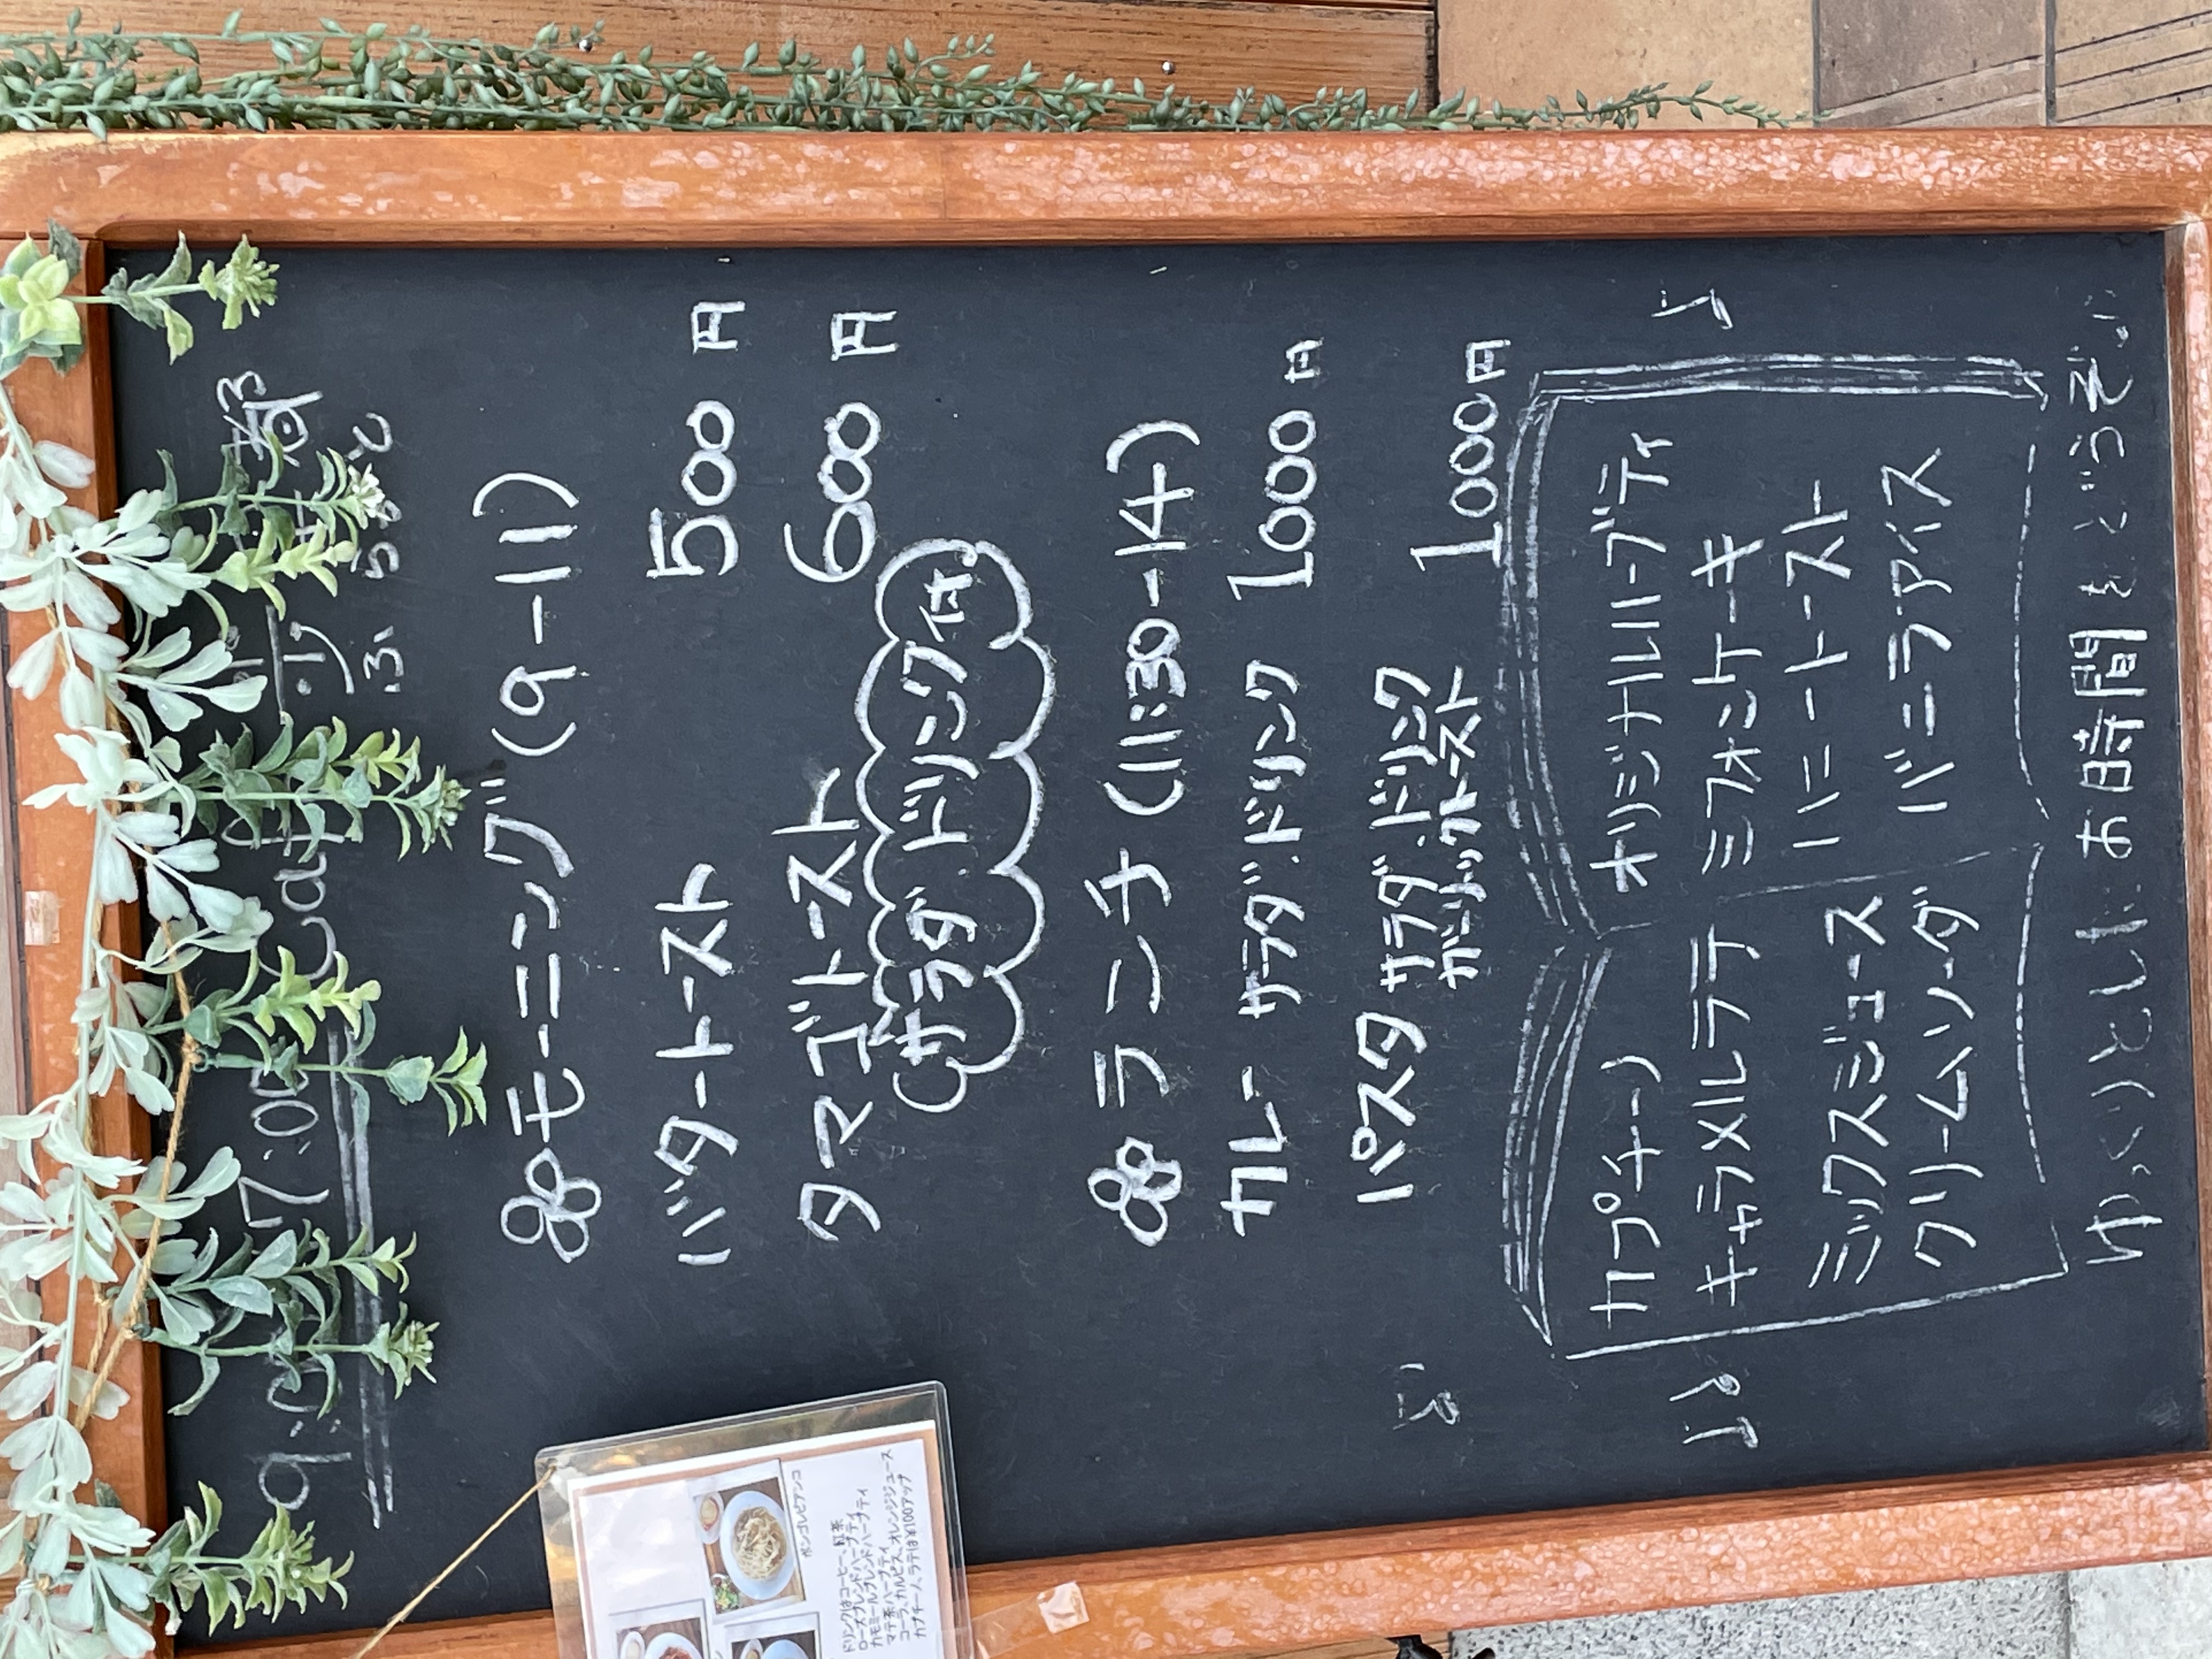 9:00 17:00 Caf
ふ ら と
モーニング (9-11)
バタートースト 500円
タマゴトースト 600円
(サラダ.ドリンク付)
ランチ (11:30-14)
カレー サラダ.ドリンク 1000円
パスタ サラダ.ドリンク 1000円
ガーリックトースト
カプチーノ
キャラメルラテ
ミックスジュース
クリームソーダ
オリジナルハーブティ
シフォンケーキ
ハニートースト
バニラアイス
ゆっくりとした お時間をどうぞ
ボンゴレビアンコ
ドリンクはコーヒー、紅茶
ローズブレンドハーブティ
カモミールブレンドハーブティ
マテ茶ハーブティ
コーラ、カルピス、オレンジジュース
カプチーノ、ラテは¥100アップ